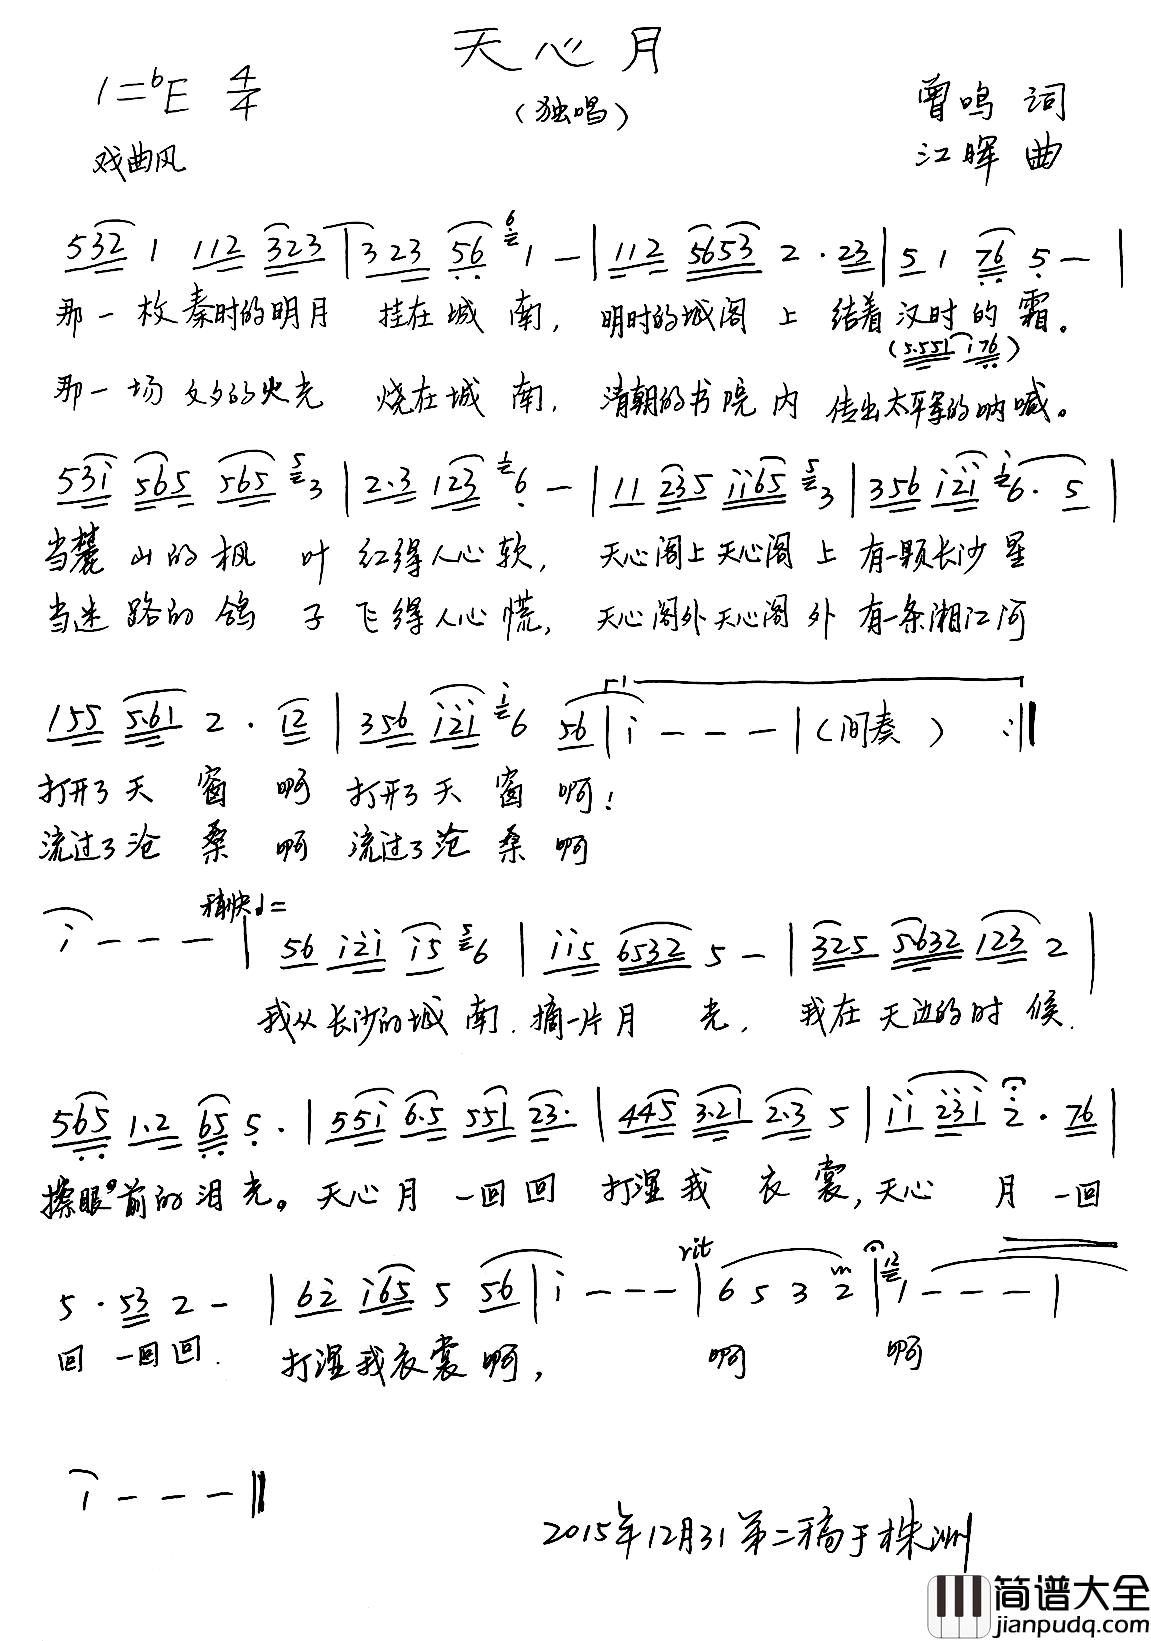 天心月
1=bE 4/4
（独唱）
曾鸣 词
戏曲风
江晖 曲
532 1 112 323 | 323 56 6 2 1 - | 112 5653 2 · 23 | 5 1 76 5 - |
那一枚秦时的明月 挂在城南， 明时的城阁上 结着汉时的霜。
(5.551 i76)
那一场文夕的火光 烧在城南， 清朝的书院内 传出太平军的呐喊。
53i 565 565 5 3 | 2·3 123 6 - | 11 235 ii65 5 3 | 356 i2i i 6 · 5 |
当麓山的枫叶红得人心软， 天心阁上天心阁上有一颗长沙星
当迷路的鸽子飞得人心慌， 天心阁外天心阁外有一条湘江河
155 5·61 2 · 12 | 356 i2i i 6 56 | i - - - | （间奏） :||
打开了天窗啊 打开了天窗啊！
流过了沧桑啊 流过了沧桑啊
i - - - | 稍快 ♩= 56 i2i i5 5 6 | ii5 6532 5 - | 325 5632 123 2 |
我从长沙的城南.摘一片月光， 我在天边的时候.
565 1·2 65 5 · | 55i 6·5 551 23· | 445 3·21 2·3 5 | ii 23i 2 · 76 |
擦眼前的泪光。天心月一回回 打湿我衣裳，天心月一回
rit
5 · 53 2 - | 62 i65 5 56 | i - - - | 6 5 3 2 | 12 1 - - - |
回一回回. 打湿我衣裳啊， 啊 啊
i - - - ||
2015年12月31第二稿于株洲
简谱大全
jianpudq.com